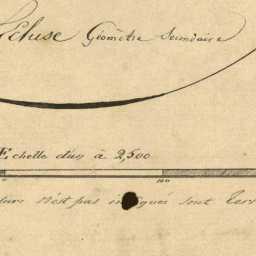 Ecluse Géomètre Secondaire
Echelle d'un à 2,500
100
n'est pas indiqués sont